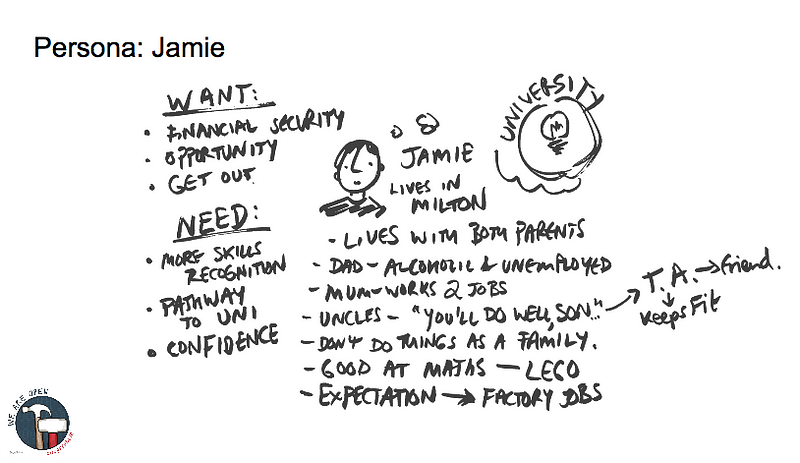 Persona: Jamie
WANT:
• FINANCIAL SECURITY
• OPPORTUNITY
• GET OUT.
NEED:
• MORE SKILLS
RECOGNITION
• PATHWAY
TO UNI
• CONFIDENCE
JAMIE
LIVES IN
MILTON
UNIVERSITY
- LIVES WITH BOTH PARENTS
- DAD - ALCOHOLIC & UNEMPLOYED
- MUM - WORKS 2 JOBS
- UNCLES - "YOU'LL DO WELL, SON." → T.A. → friend.
↓
keeps Fit
- DON'T DO THINGS AS A FAMILY.
- GOOD AT MATHS - LEGO
- EXPECTATION → FACTORY JOBS
WE ARE OPEN